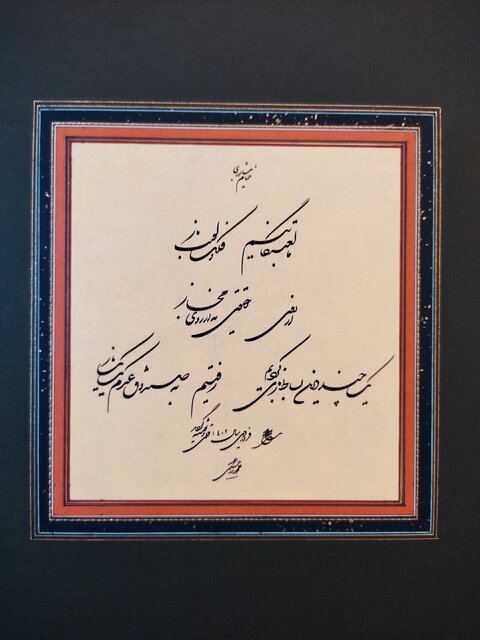 خیام نیشابوری
ما لعبتگانیم فلک لعبت باز
از روی حقیقتی نه از روی مجاز
یک چند درین بساط بازی کردیم رفتیم به صندوق عدم یک یک باز
سال ۱۴۰۲